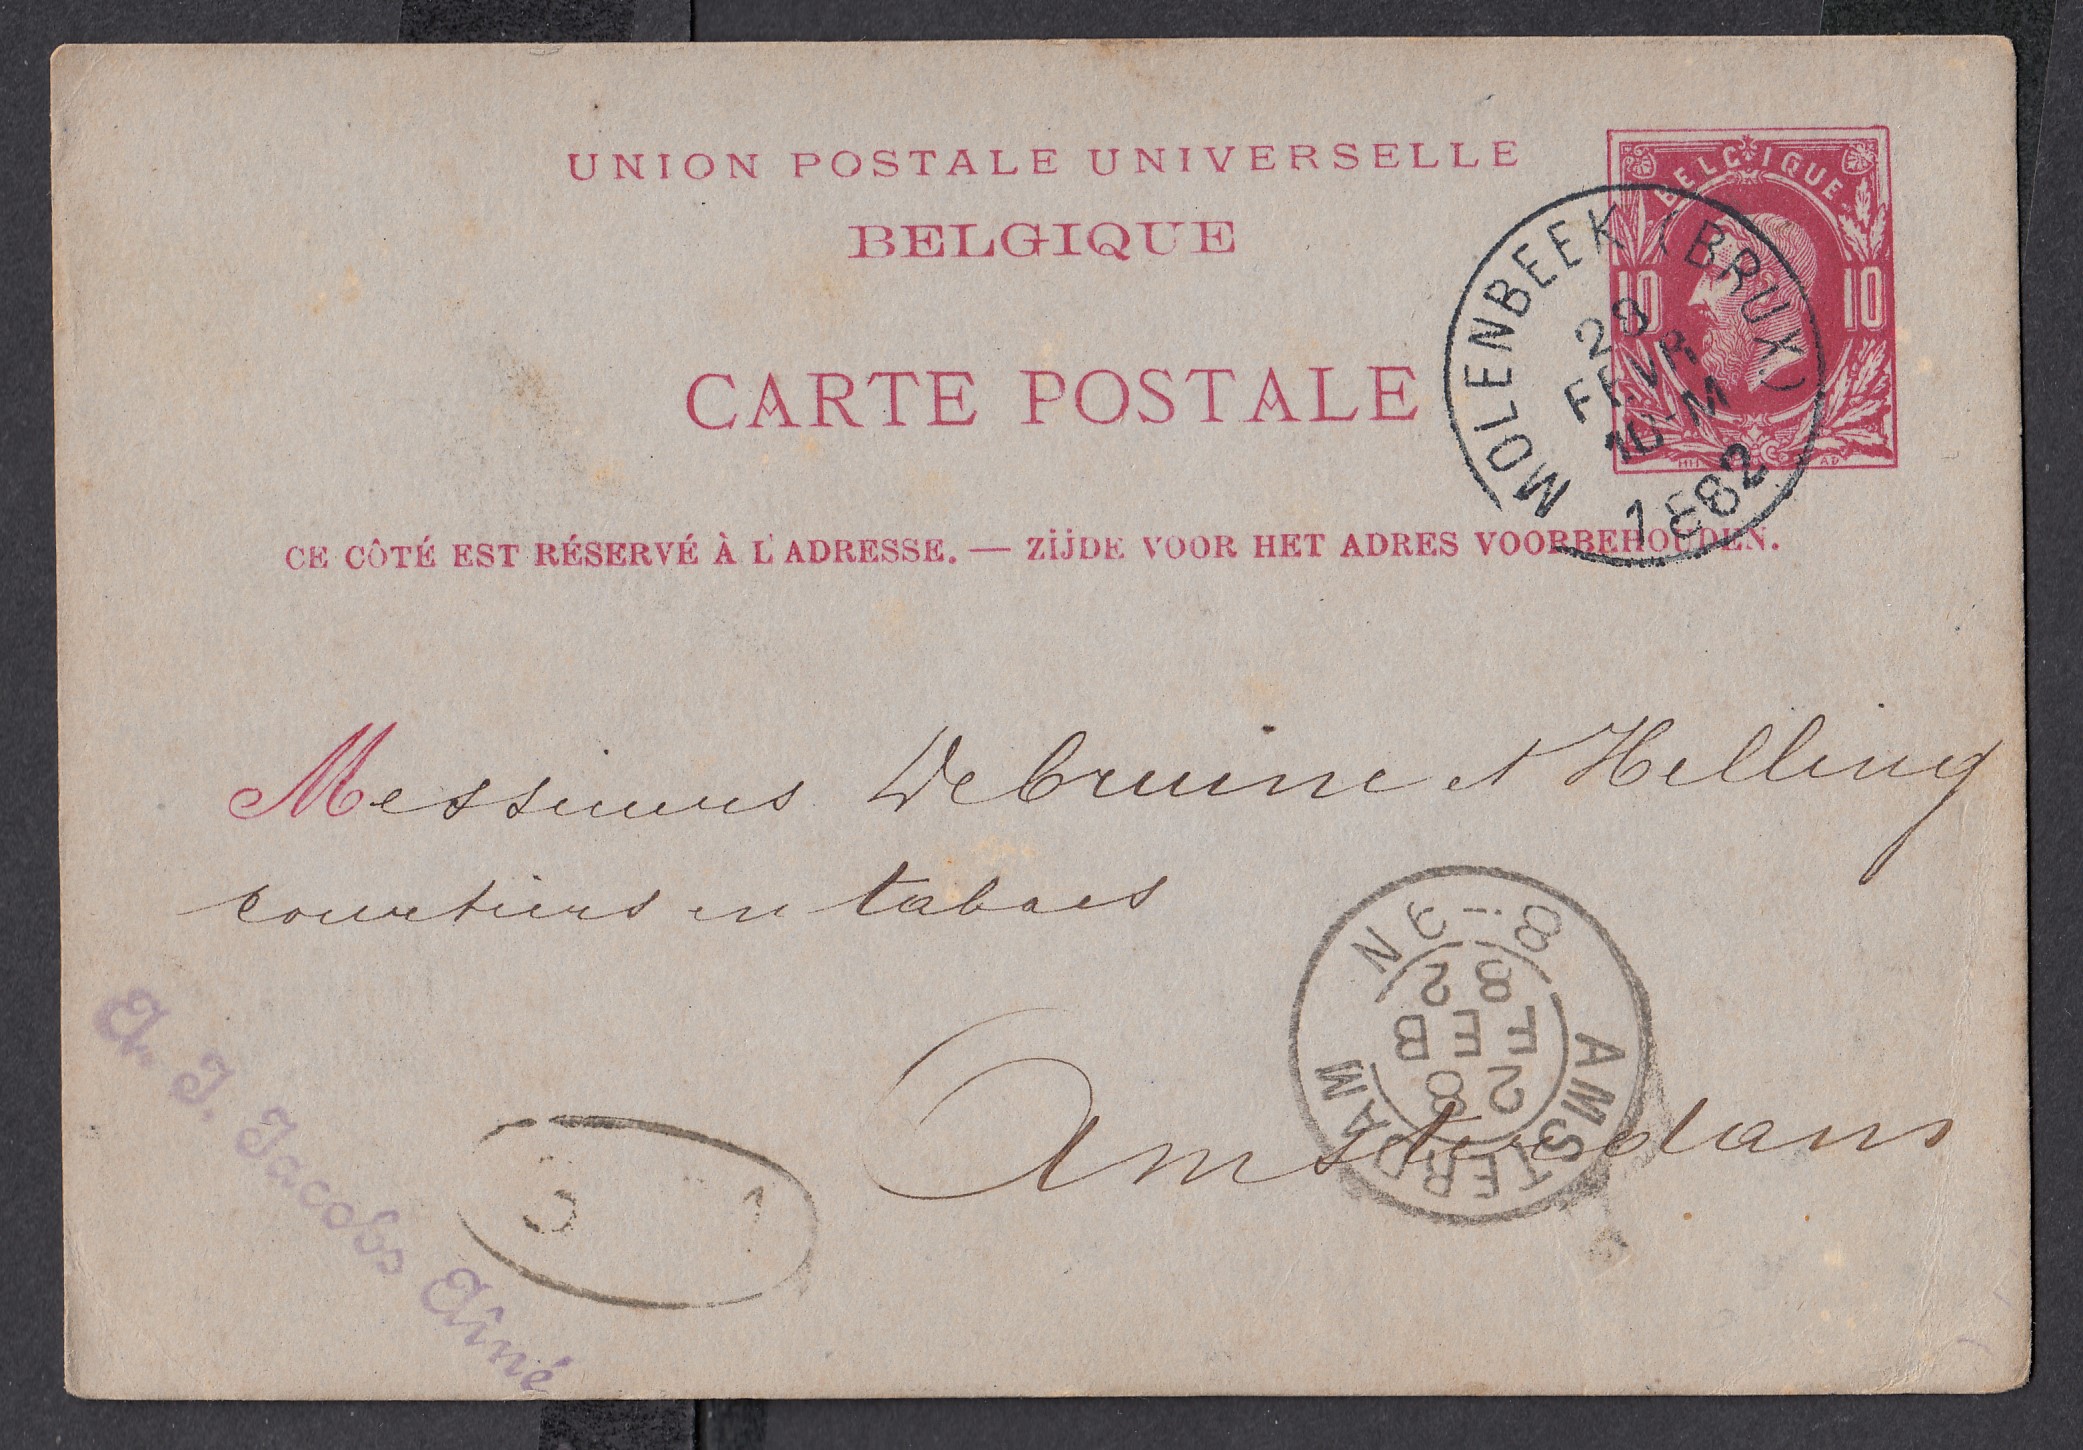 UNION POSTALE UNIVERSELLE
BELGIQUE
BELGIQUE
10 10
CARTE POSTALE
MOLENBEEK (BRUX.)
28
FEVR
10-M
1882
CE CÔTÉ EST RÉSERVÉ À L'ADRESSE. — ZIJDE VOOR HET ADRES VOORBEHOUDEN.
Messieurs De bruine et Helling
courtiers en tabacs
Amsterdam
AMSTERDAM
28
FEB
82
8
N
J. Jacobs Aîné